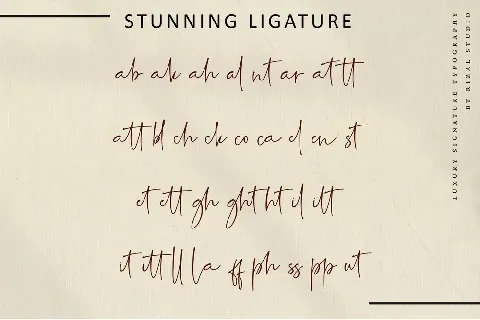 STUNNING LIGATURE
ab ak ah al nt ar at tt
att bl ch ck co ca cl cn st
et ett gh ght ht il ilt
it itt ll la ff ph ss pp ut
LUXURY SIGNATURE TYPOGRAPHY
BY RIZAL STUDIO